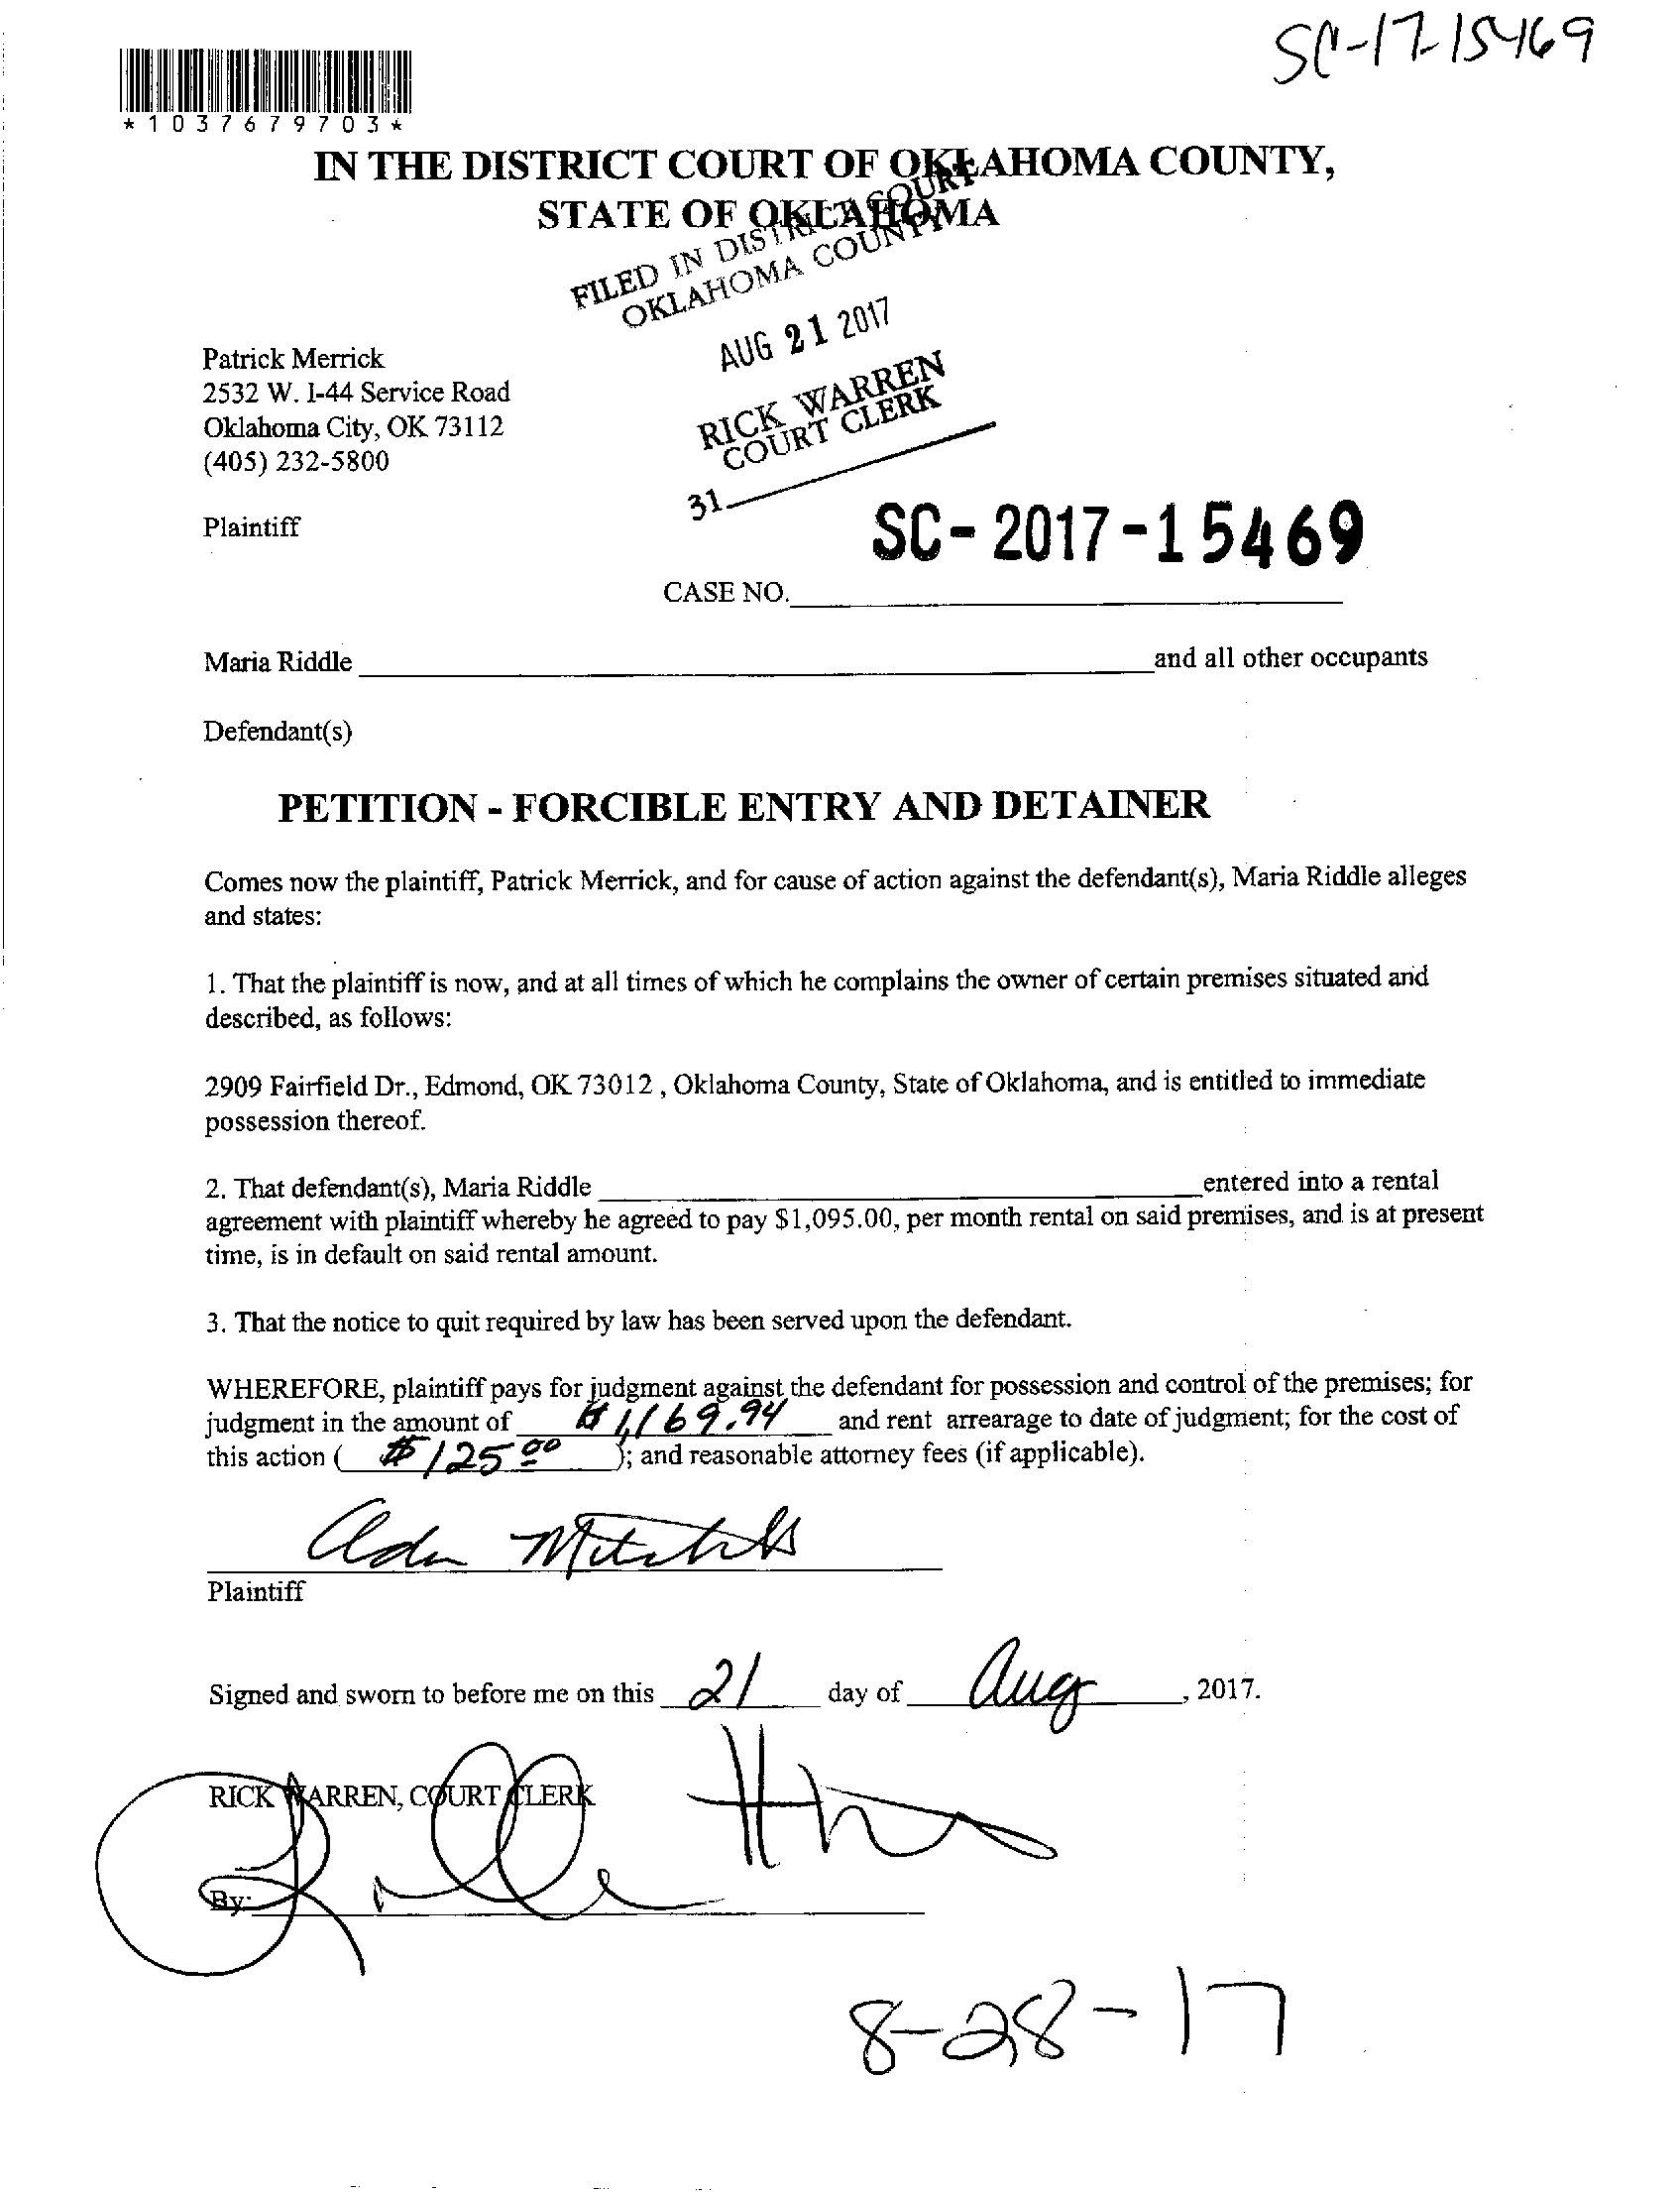 SC-17-15469
*1037679703*
IN THE DISTRICT COURT OF OKLAHOMA COUNTY,
STATE OF OKLAHOMA
FILED IN DISTRICT COURT
OKLAHOMA COUNTY
AUG 21 2017
RICK WARREN
COURT CLERK
31
Patrick Merrick
2532 W. I-44 Service Road
Oklahoma City, OK 73112
(405) 232-5800
Plaintiff
SC-2017-15469
CASE NO.
Maria Riddle and all other occupants
Defendant(s)
PETITION - FORCIBLE ENTRY AND DETAINER
Comes now the plaintiff, Patrick Merrick, and for cause of action against the defendant(s), Maria Riddle alleges
and states:
1. That the plaintiff is now, and at all times of which he complains the owner of certain premises situated and
described, as follows:
2909 Fairfield Dr., Edmond, OK 73012 , Oklahoma County, State of Oklahoma, and is entitled to immediate
possession thereof.
2. That defendant(s), Maria Riddle entered into a rental
agreement with plaintiff whereby he agreed to pay $1,095.00, per month rental on said premises, and is at present
time, is in default on said rental amount.
3. That the notice to quit required by law has been served upon the defendant.
WHEREFORE, plaintiff pays for judgment against the defendant for possession and control of the premises; for
judgment in the amount of $1,169.94 and rent arrearage to date of judgment; for the cost of
this action ( $125.00 ); and reasonable attorney fees (if applicable).
Plaintiff
Signed and sworn to before me on this 21 day of Aug, 2017.
RICK WARREN, COURT CLERK
By:
8-28-17